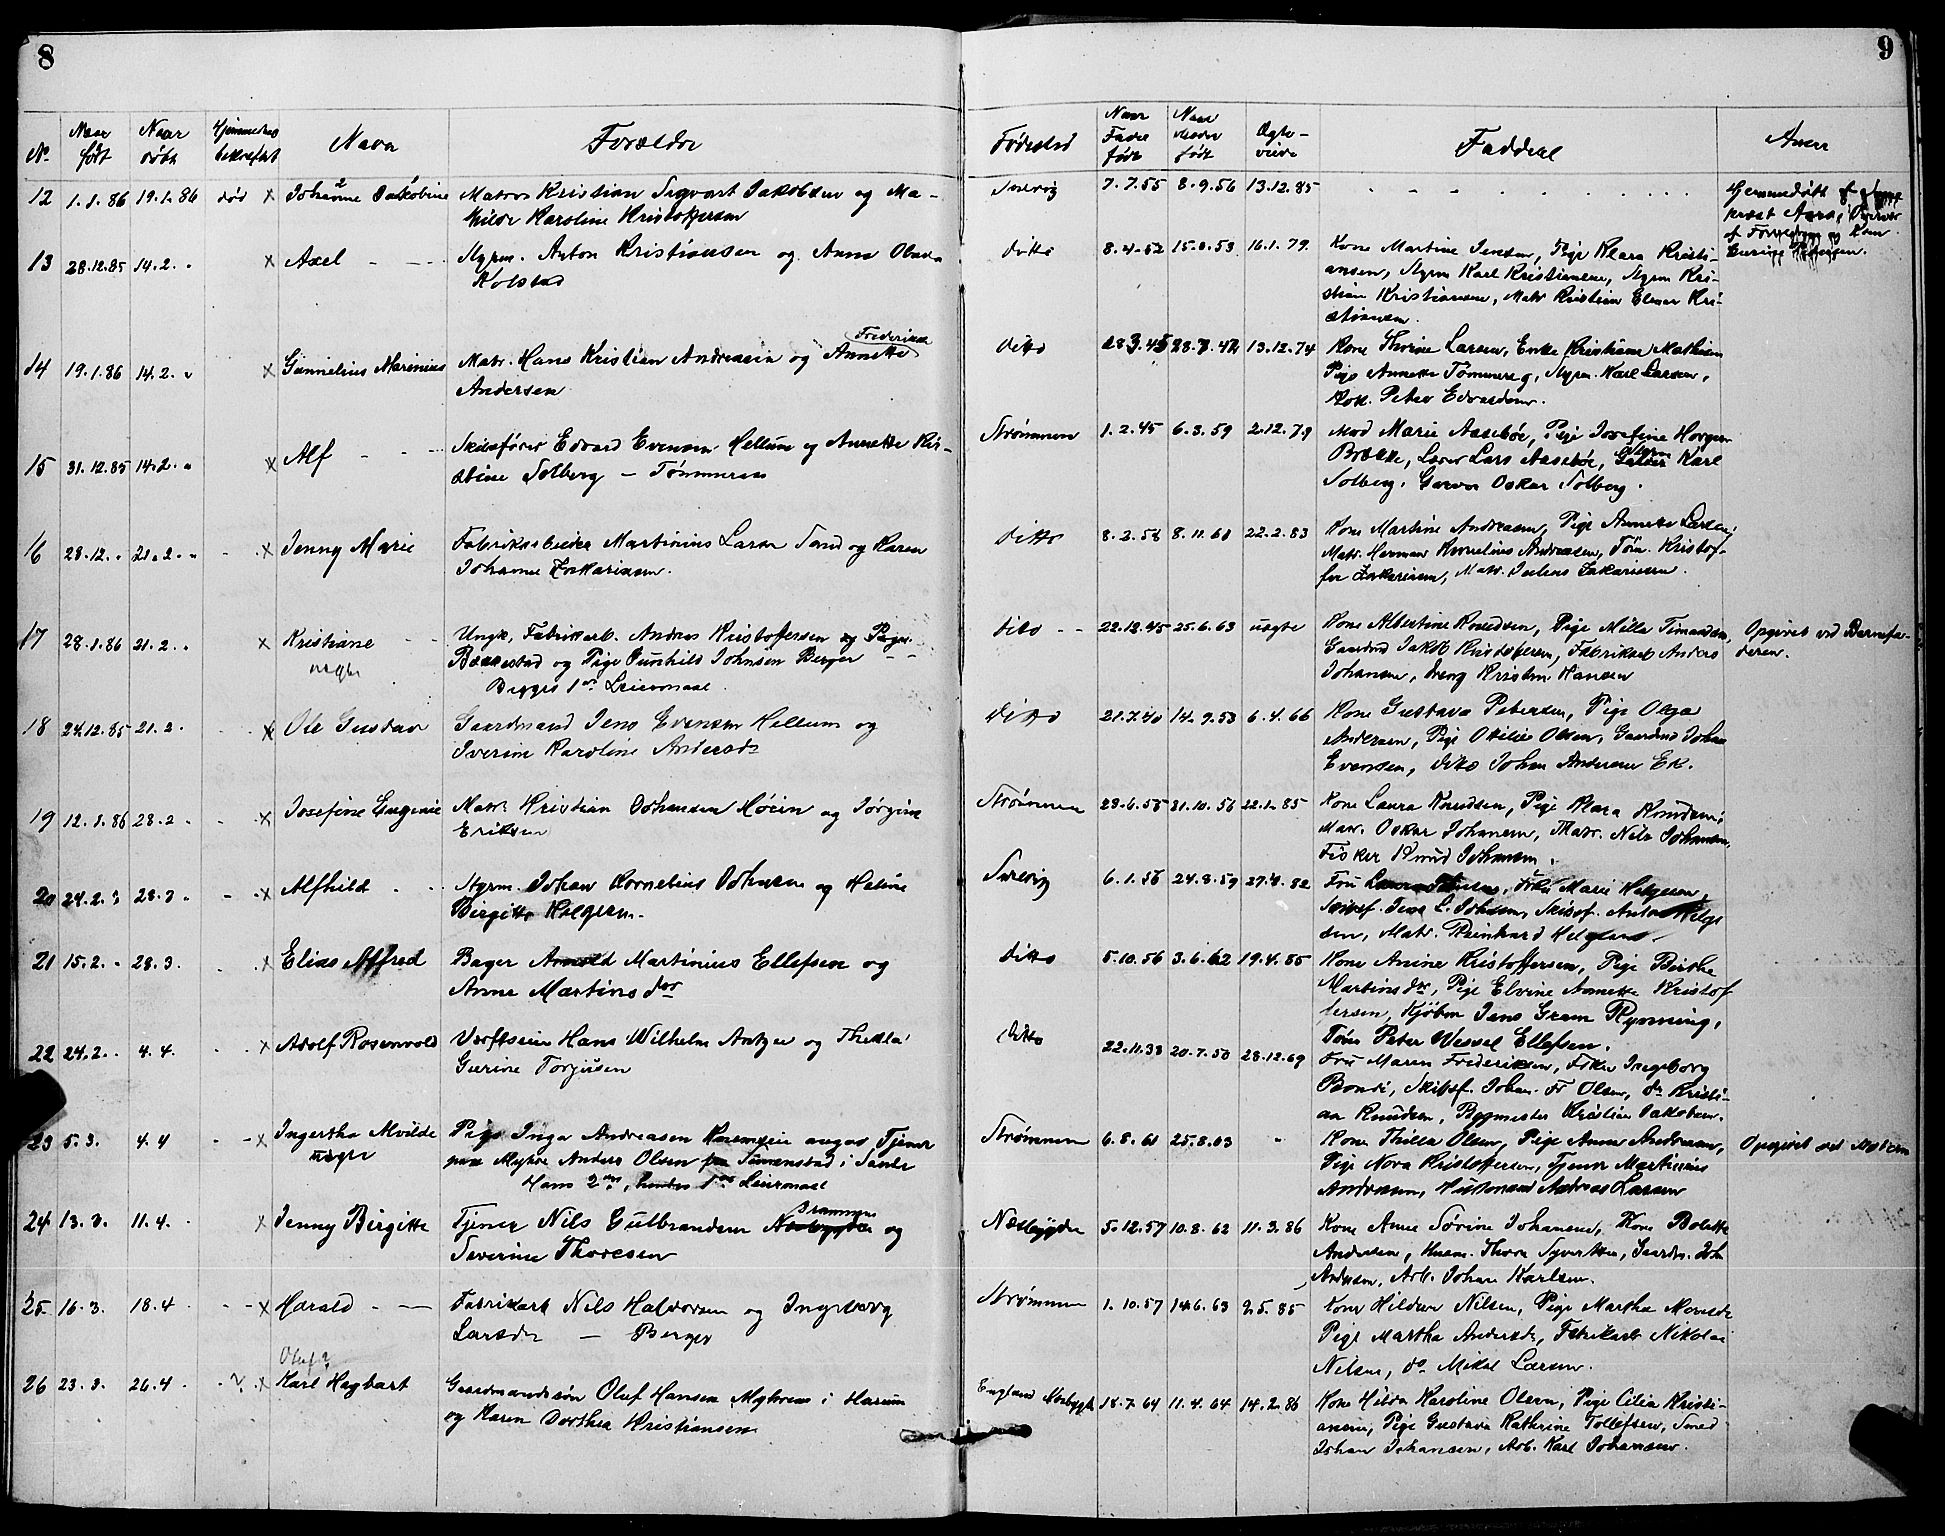 8
9
No Naar født Naar døbt Hjemmedaab bekræftet Navn Forældre
Fødested Naar Fader født Naar Moder født Ægte-viede Faddere Anm
12 1.1.86 19.1.86 død x Johanne Jakobine Matros Kristian Sigvart Jakobsen og Ma-
thilde Karoline Kristoffersen
Snevig 7.7.55 8.9.56 13.12.85
Hjemmedøbt af
13 28.12.85 14.2. x Axel Styrm. Anton Kristiansen og Anna
Kolstad
ditto 8.4.52 15.8.53 16.1.79 Kone Martine Jensen, Pige Klara Kristi-
ansen, Styrm Karl Kristiansen, Styrm Kri-
stian Kristiansen, Matr Kristian Elmar Kri-
stiansen.
14 19.1.86 14.2. x Gunnelius Marinius Matr. Hans Kristian Andreasen og Annette Frederikke
Andersen
ditto 13.12.74 Kone Thorine Larsen, Enke Kristiane Mathisen
Pige Annette Tømmeraas, Styrm. Karl Larsen,
Peter Edvardsen.
15 31.12.85 14.2. x Alf Skibsfører Edvard Evensen Hellum og Annette Kri-
stine Solberg — Tømmeraas
Strømmen 1.2.45 6.3.59 2.12.79 Mad Marie Aasebøe, Pige Josefine Horgen
Brække, Lærer Lars Aasebøe, Styrm Karl
Solberg, Garver Oskar Solberg.
16 28.12. 21.2. x Jenny Marie Fabrikarbeider Martinius Larsen Sand og Karen
Johanne Zakariasen.
ditto 8.2.58 8.11.61 22.2.83 Kone Martine Andreasen, Pige Annette Larsen,
Matr. Herman Kornelius Andreasen, Tøm. Kristof-
fer Zakariasen, Matr. Julius Zakariasen.
17 28.1.86 21.2. x Kristiane Ungk. Fabrikarb. Andreas Kristoffersen
uægte Bakkestad og Pige Gunhild Johnsen Berger
Begges 1ste Leiermaal.
ditto 22.12.45 25.6.63 uægte Kone Albertine Knudsen, Pige Milla Timandsen,
Gaardmd Jakob Kristoffersen, Fabrikarb Anders
Johansen, Dreng Kristen Hansen
Opgivet ved Barnefa-
deren.
18 24.12.85 21.2. x Ole Gustav Gaardmand Jens Evensen Hellum og
Iverine Karoline Andersdr
ditto 21.7.40 14.9.53 6.4.66 Kone Gustava Petersen, Pige Olga
Andersen, Pige Otilie Olsen, Gaardmd Johan
Evensen, ditto Johan Andersen Ek.
19 12.1.86 28.2 x Josefine Eugenie Matr. Kristian Johansen Moen og Jørgine
Eriksen
Strømmen 29.6.55 31.10.56 22.1.85 Kone Laura Knudsen, Pige Klara Knudsen,
Matr. Oskar Johansen, Matr. Nils Johansen,
Fisker Knud Johansen.
20 24.2. 28.3 x Alfhild Styrm. Johan Kornelius Johnsen og Heline
Birgitte Helgesen.
Snevig 6.1.56 24.8.59 27.4.82 Fru Laura Frøken Marie Helgesen,
Skibsf. Jens L. Johnsen, Skibsf. Anton Helge-
sen, Matr. Reinhard Helgesen.
21 15.2. 28.3. x Elias Alfred Bager Arnold Martinius Ellefsen og
Anne Martinsdtr
ditto 5.10.56 3.6.62 19.4.85 Kone Anine Kristoffersen, Pige Birthe
Martinsdtr, Pige Elvine Annette Kristof-
fersen, Kjøbm Jens Gram Rynning,
Tøm Peter Wessel Ellefsen.
22 24.2. 4.4. x Adolf Rosenvold Værftseier Hans Wilhelm Antzen og Thekla
Gurine Torjusen
Ditto 22.11.38 20.7.50 28.12.69 Fru Maren Frederiksen, Frøken Ingeborg
Bondi, Skibsf. Johan Fr Olsen, do Kristi-
an Knudsen, Bygmester Kristian Jakobsen.
23 5.3. 4.4 x Ingertha Alvilde Pige Inga Andreasen Tjener
uægte Anders Olsen fra i Sande
Hans 2den, hendes 1ste Leiermaal
Strømmen 6.8.61 25.8.63 Kone Thilla Olsen, Pige Anne Andreasen,
Pige Nora Kristoffersen, Tjener Martinius
Andreasen, Husmand Andreas Larsen
Opgivet ved Moderen
24 13.3. 11.4. x Jenny Birgitte Tjener Nils Gulbrandsen Næsbygden og
Severine Thoresen
Næsbygden 5.12.57 10.8.62 11.3.86 Kone Anne Sørine Johansen, Kone Bolette
Andersen, Husm. Thorn Syvertsen, Gaardm. Joh
Andersen, Arb. Johan Karlsen.
25 16.3. 18.4 x Harald Fabrikarb Nils Halvorsen og Ingeborg
Larsdr — Berger
Strømmen 1.10.57 14.6.63 2.5.85 Kone Hildur Nilsen, Pige Martha
Pige Martha Andersdr, Fabrikarb Nikolai
Nilsen, do Mikal Larsen.
Oluf?
26 23.3. 26.4 x Karl Hagbart Gaardmandssøn Oluf Hansen Myhrene i Hurum
og Karen Dorthea Kristiansen
England Næsbygd 18.7.64 11.4.64 14.2.86 Kone Hilda Karoline Olsen, Pige Cilia Kristi-
ansen, Pige Gustava Kathrine Tollefsen, Smed
Johan Johansen, Arb. Karl Johansen.